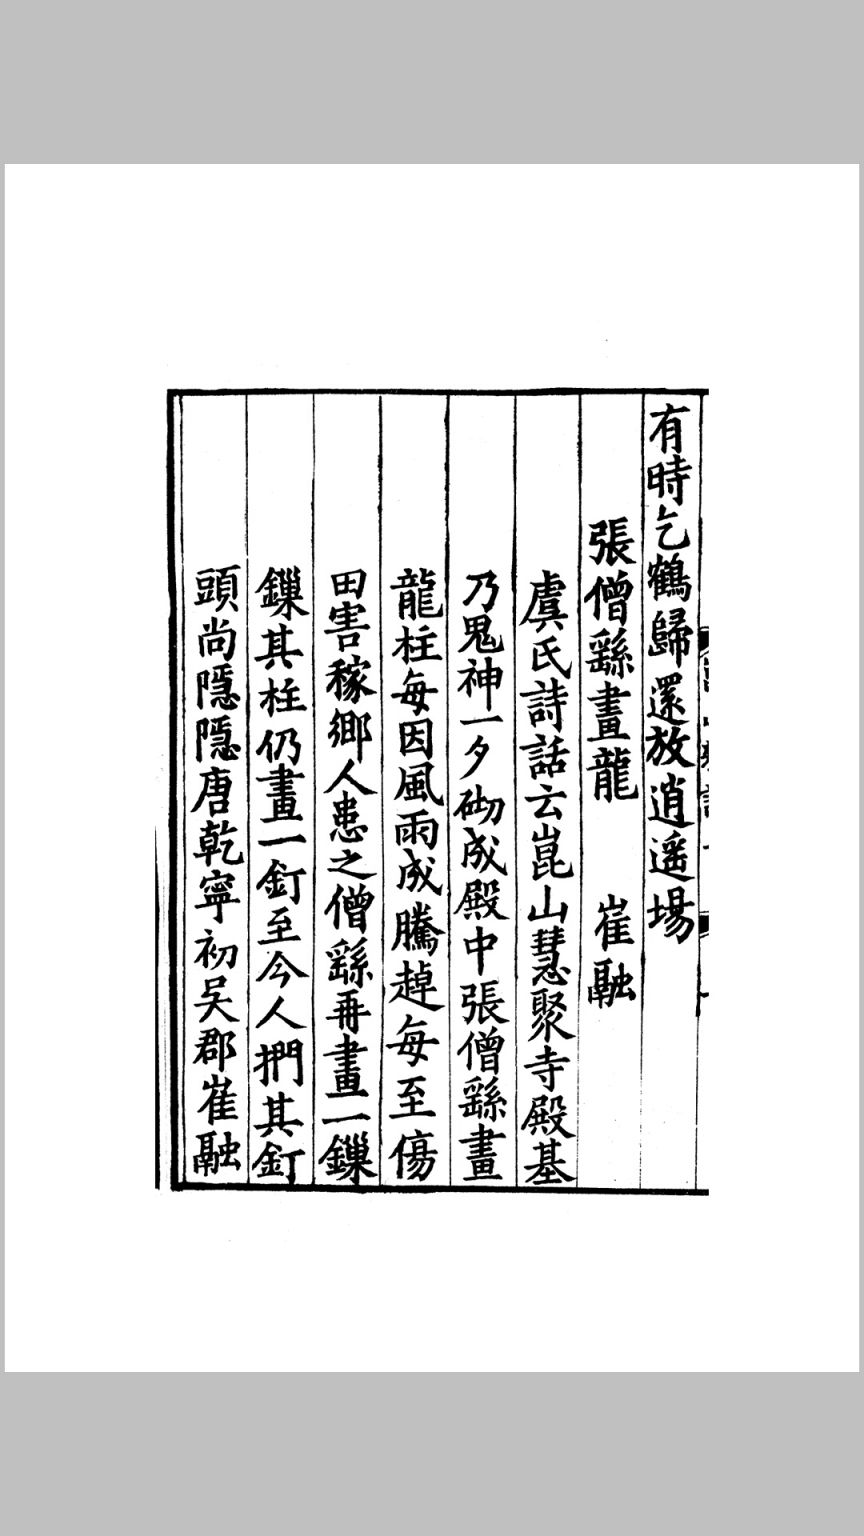 有時乞鶴歸還放逍遥場
張僧繇畫龍　崔融
虞氏詩話云崑山慧聚寺殿基
乃鬼神一夕砌成殿中張僧繇畫
龍柱每因風雨成騰趠每至傷
田害稼鄉人患之僧繇再畫一鏁
鏁其柱仍畫一釘至今人捫其釘
頭尚隱隱唐乾寧初吳郡崔融